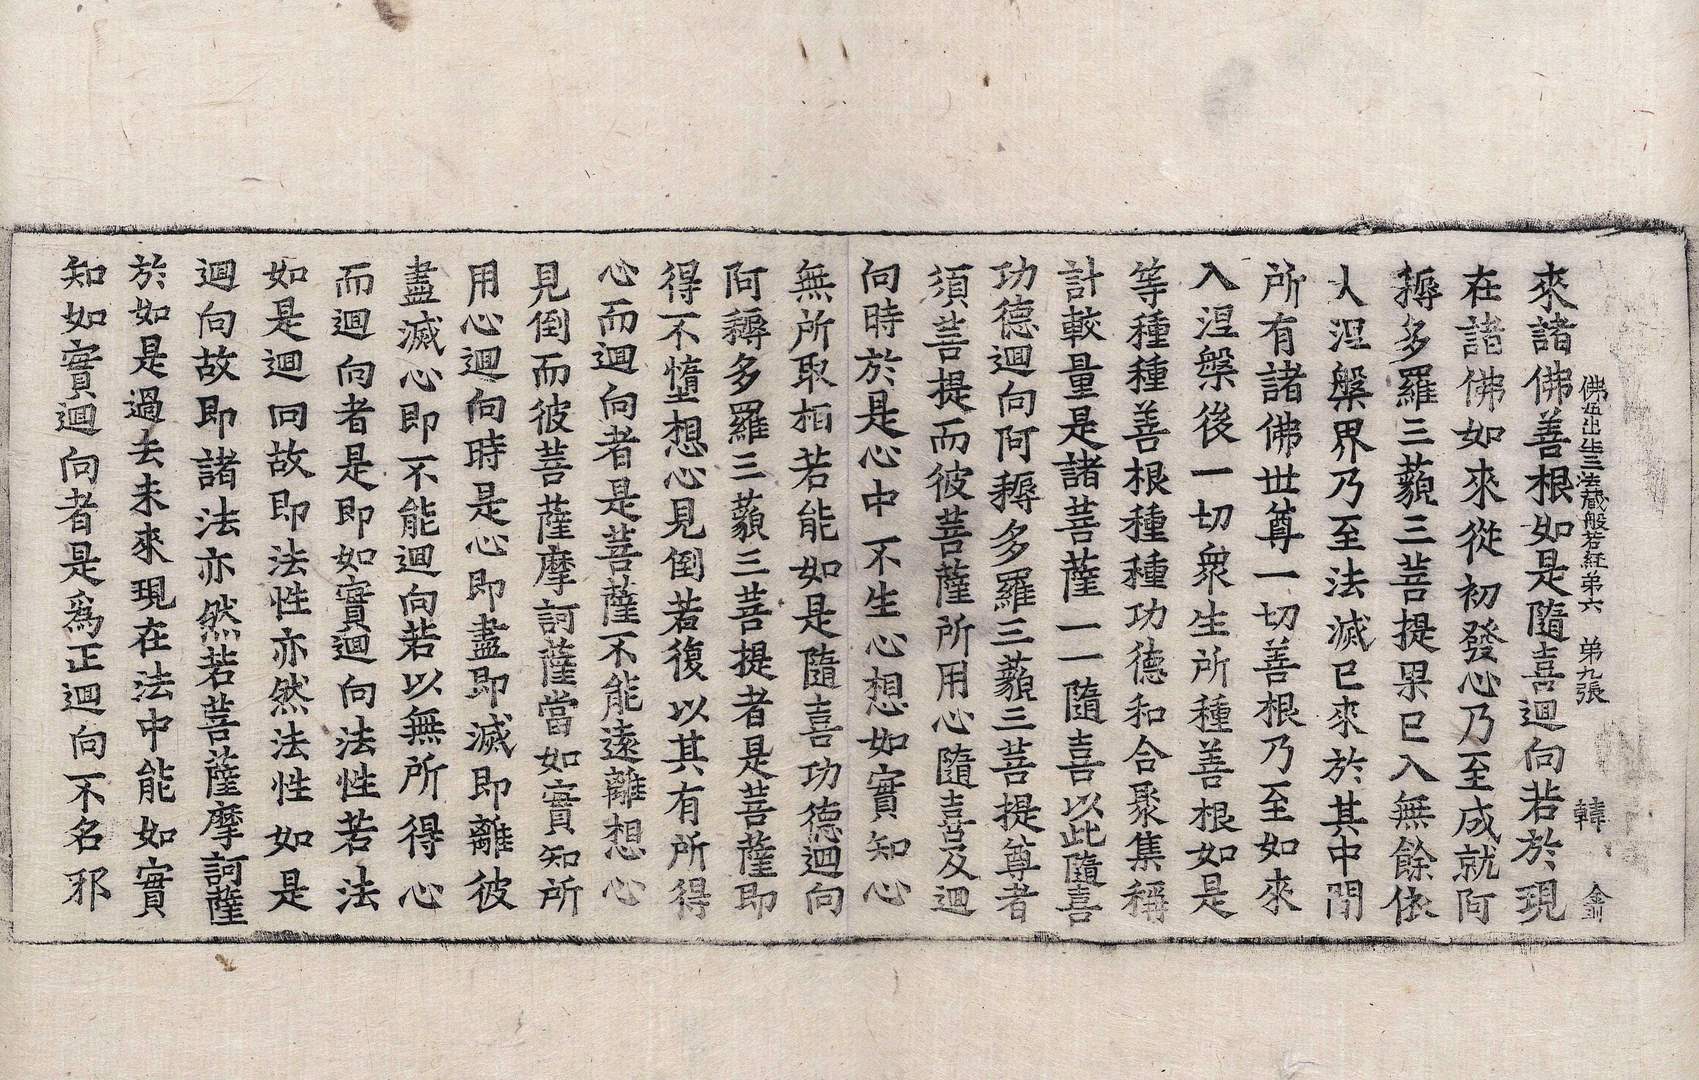 佛母出生三法藏般若経第六　第九張　韓　金刂
來諸佛善根如是隨喜迴向若於現
在諸佛如來從初發心乃至成就阿
耨多羅三藐三菩提果已入無餘依
大涅槃界乃至法滅已來於其中閒
所有諸佛世尊一切善根乃至如來
入涅槃後一切衆生所種善根如是
等種種善根種種功德和合聚集稱
計較量是諸菩薩一一隨喜以此隨喜
功德迴向阿耨多羅三藐三菩提尊者
須菩提而彼菩薩所用心隨喜及迴
向時於是心中不生心想如實知心
無所取相若能如是隨喜功德迴向
阿耨多羅三藐三菩提者是菩薩即
得不墮想心見倒若復以其有所得
心而迴向者是菩薩不能遠離想心
見倒而彼菩薩摩訶薩當如實知所
用心迴向時是心即盡即滅即離彼
盡滅心即不能迴向若以無所得心
而迴向者是即如實迴向法性若法
如是迴向故即法性亦然法性如是
迴向故即諸法亦然若菩薩摩訶薩
於如是過去未來現在法中能如實
知如實迴向者是爲正迴向不名邪